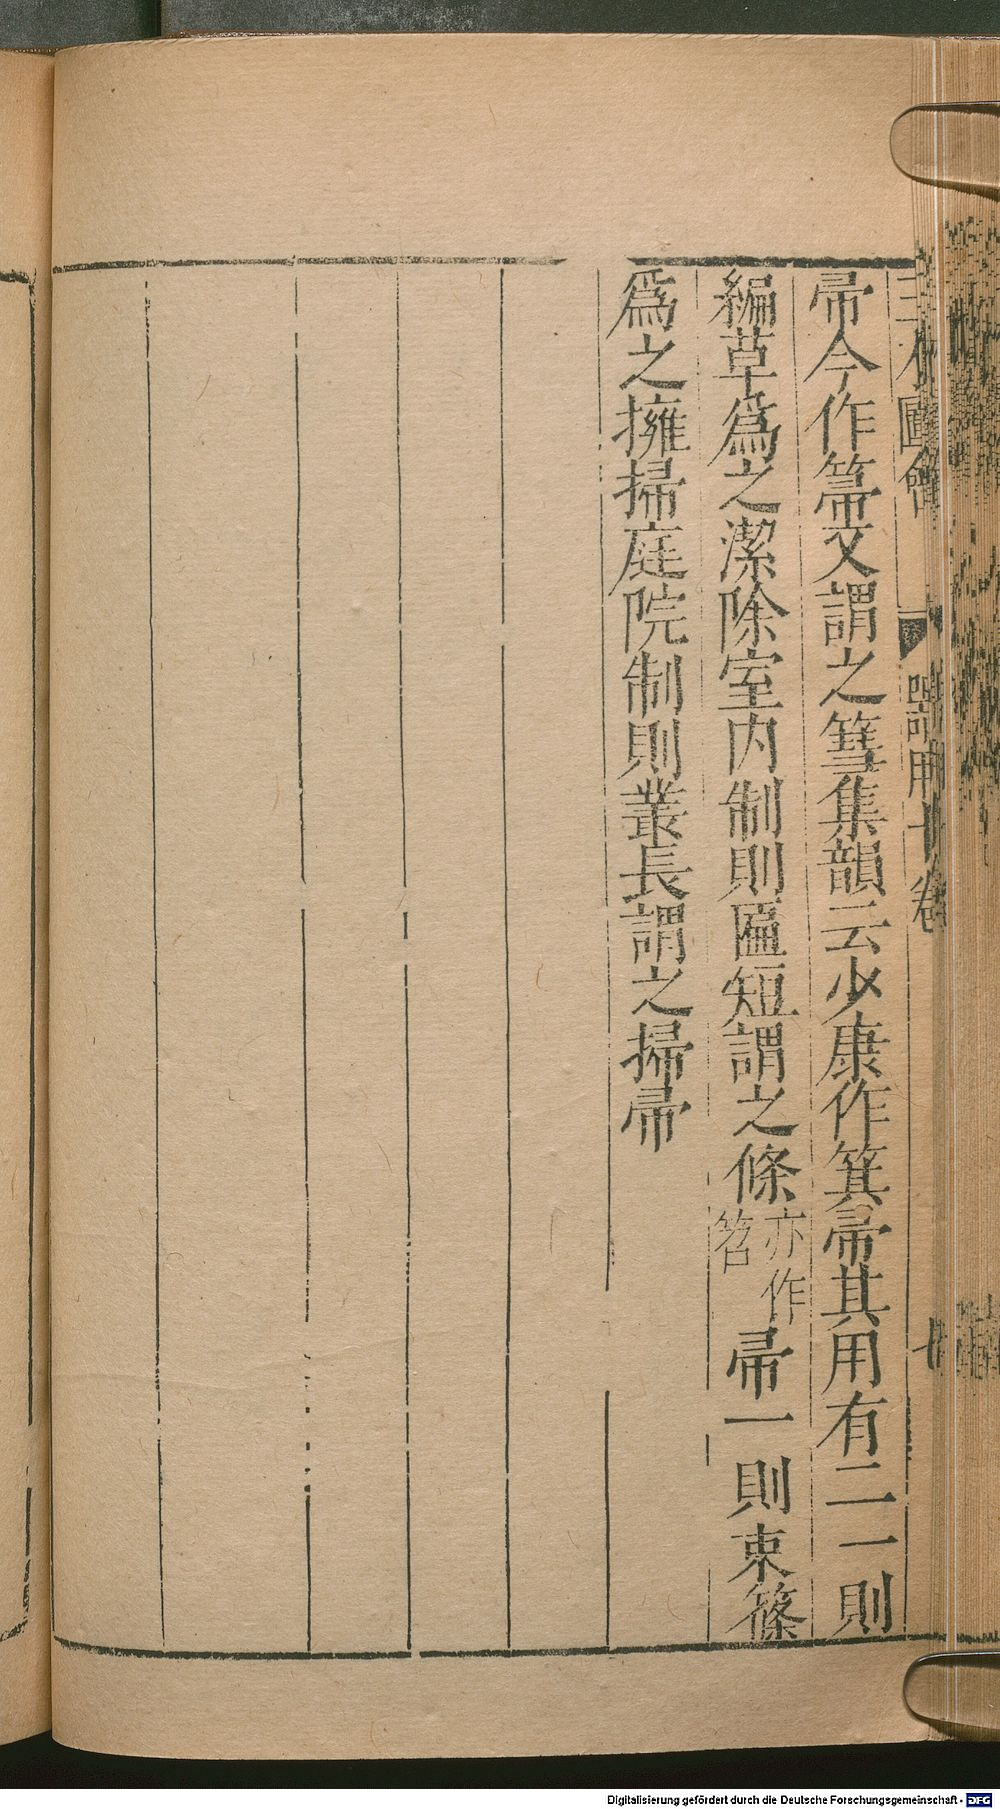 帚今作箒又謂之篲集韻云少康作箕帚其用有二一則
編草爲之潔除室内制則匾短謂之條亦作笤帚一則束篠
爲之擁掃庭院制則叢長謂之掃帚
圖會
器用十二卷
Digitalisierung gefördert durch die Deutsche Forschungsgemeinschaft - DFG